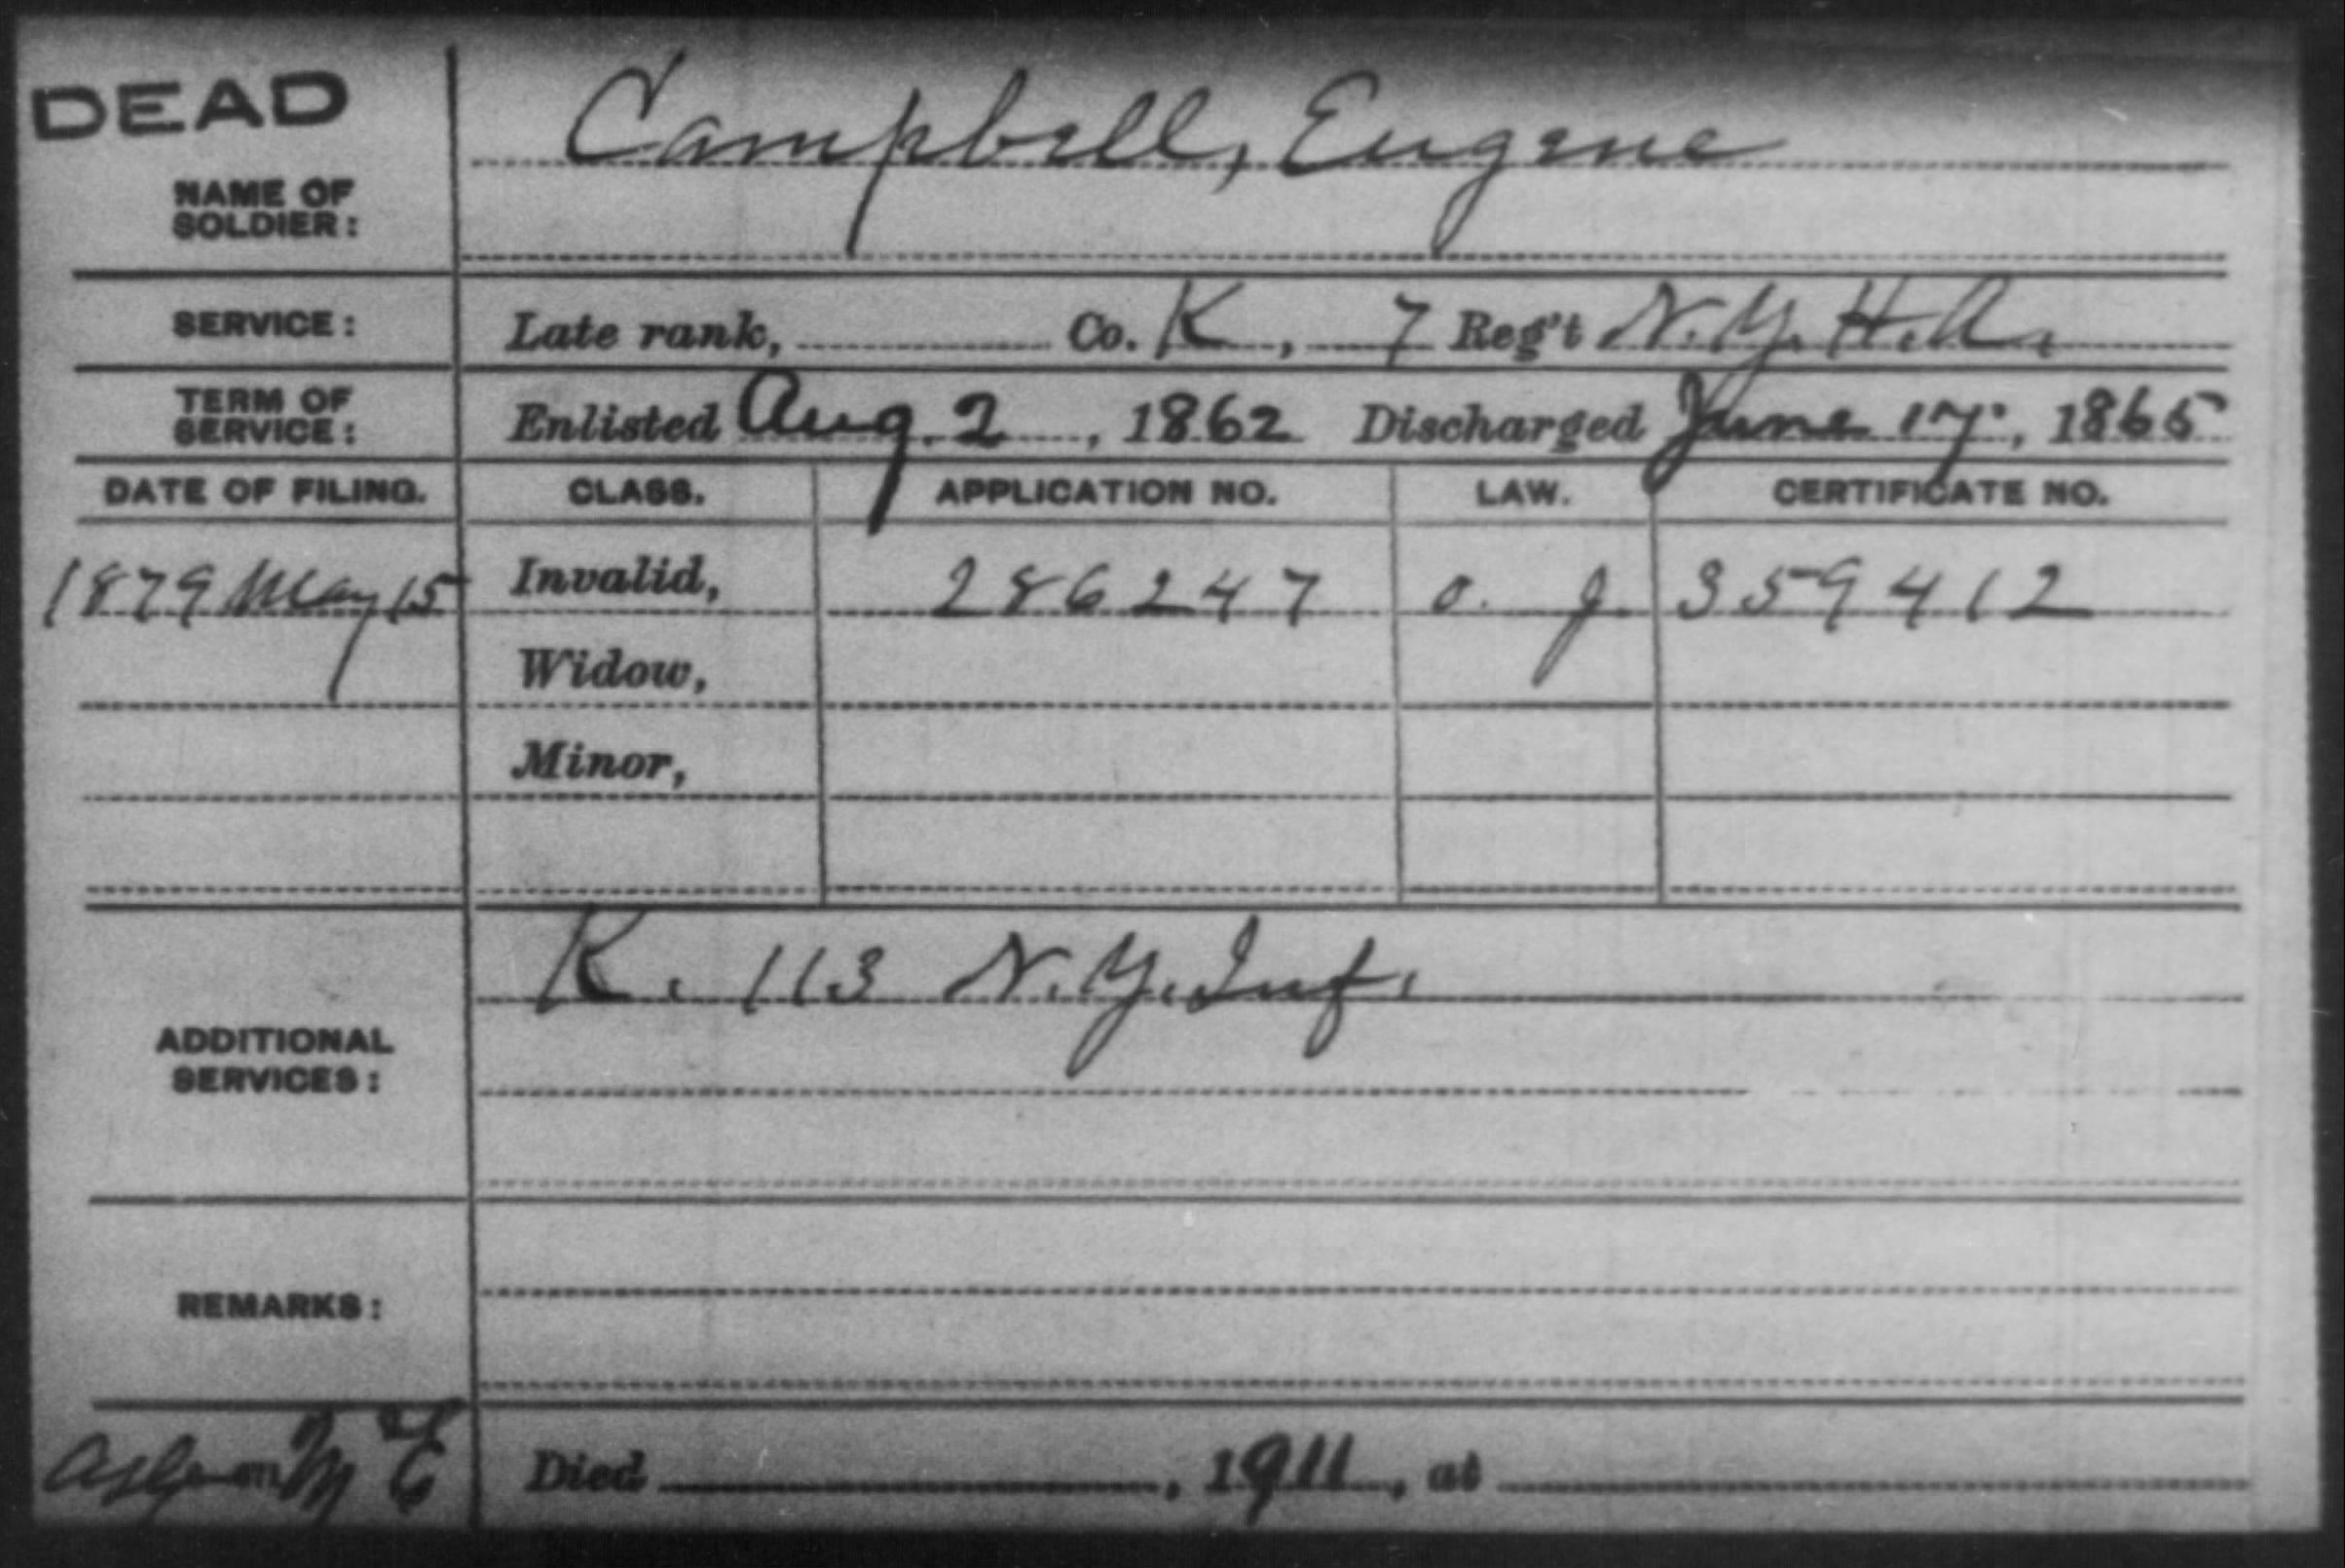 DEAD
Campbell, Eugene
NAME OF
SOLDIER:
SERVICE: Late rank, Co. K, 7 Reg't N.Y. H.A.
TERM OF
SERVICE: Enlisted Aug. 2, 1862 Discharged June 17, 1865
DATE OF FILING. CLASS. APPLICATION NO. LAW. CERTIFICATE NO.
1879 May 15 Invalid, 286247 359412
Widow,
Minor,
K. 113 N.Y. Inf.
ADDITIONAL
SERVICES:
REMARKS:
Died, 1911, at